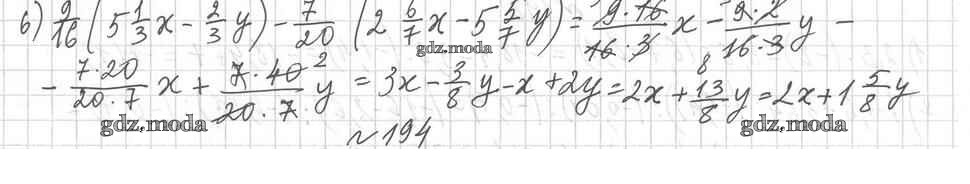 б) 9/16 (5 1/3 x - 2/3 y) - 7/20 (2 6/7 x - 5 5/7 y) = 9·16/16·3 x - 9·2/16·3 y -
gdz.moda
- 7·20/20·7 x + 7·40 2/20·7 y = 3x - 3/8 y - x + 2y = 2x + 13/8 y = 2x + 1 5/8 y
8
gdz.moda gdz.moda
№194